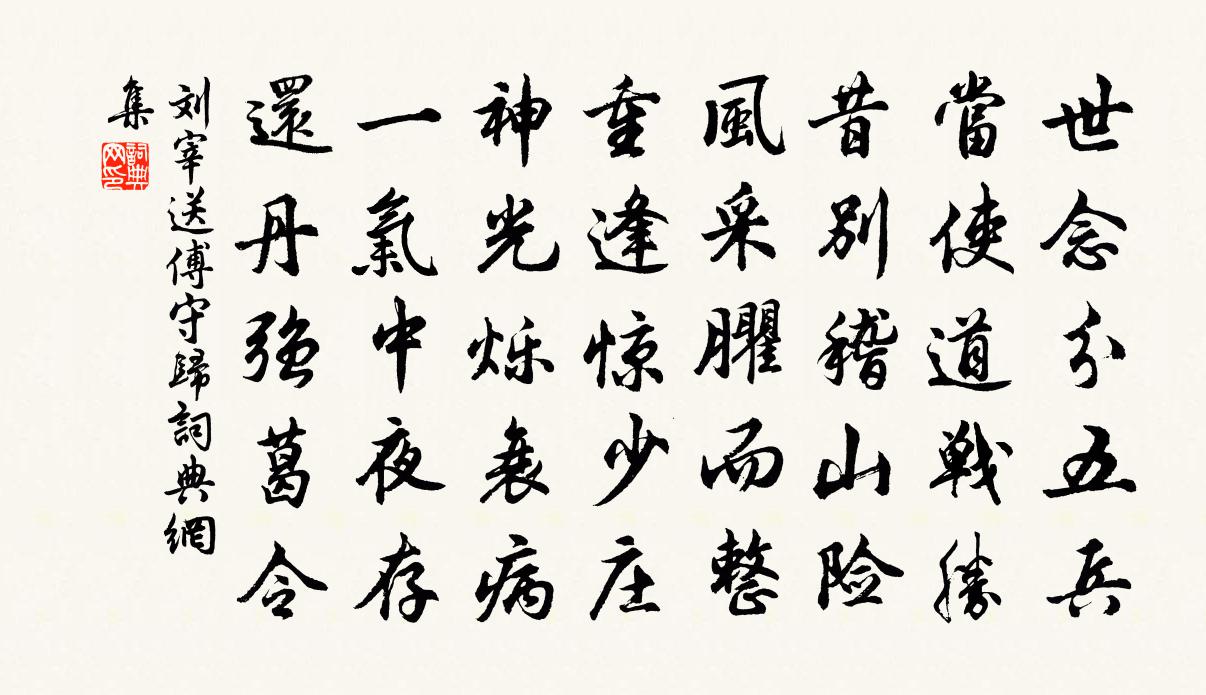 世念分五兵
當使道戰勝
昔別稽山险
風采臞而整
重逢惊少庄
神光烁衰病
一氣中夜存
還丹強葛令
刘宰送傅守歸詞典網
集
詞典网印